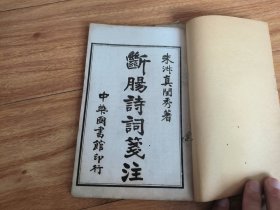 朱淑真閨秀著
斷腸詩詞箋注
中央圖書館印行